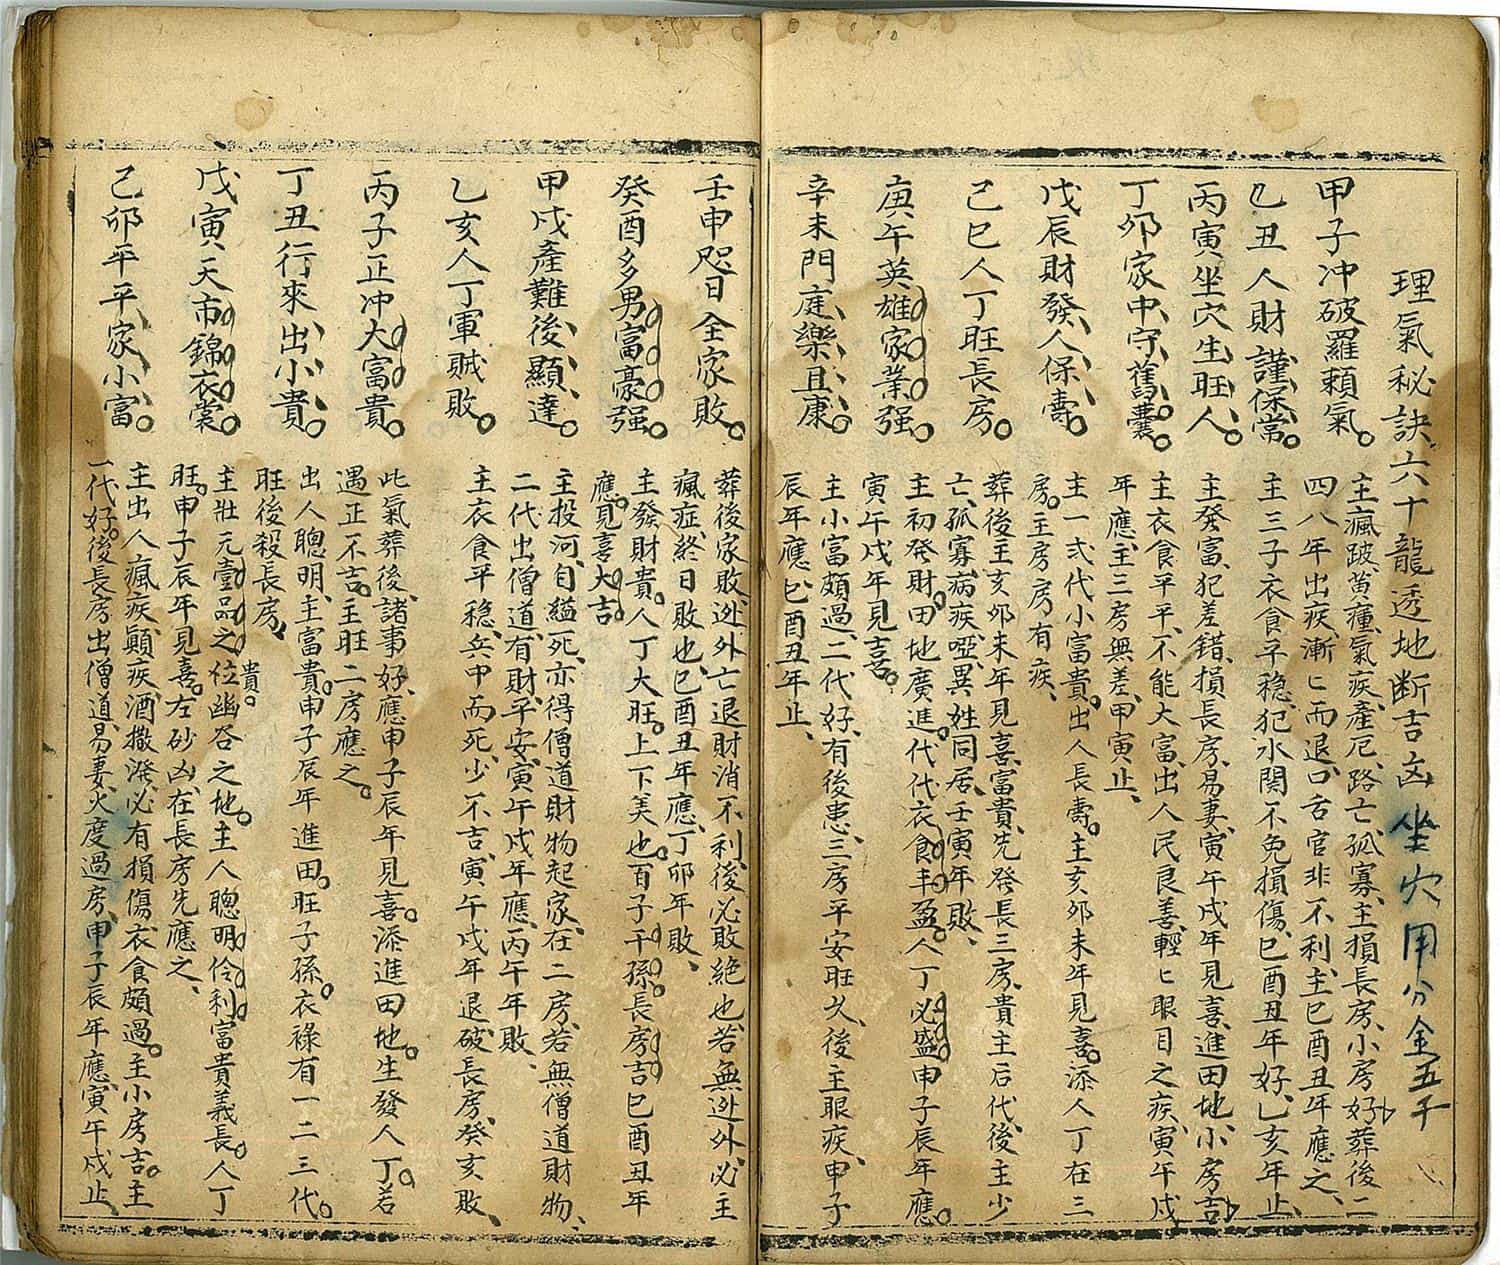 理氣秘訣六十龍透地断吉凶坐穴用分金五千
甲子冲破羅賴氣。
主瘋跛黄瘇氣疾產厄路亡孤寡主損長房小房好葬後二
四八年出疾漸匕而退口舌官非不利主巳酉丑年應之
乙丑人財謹保常。
主三子衣食子穏犯水関不免損傷巳酉丑年好乚亥年止
丙寅坐穴生旺人。
主癹富犯差錯損長房易妻寅午戌年見喜進田地小房吉
丁夘家中守舊囊。
主衣食平平不能大富出人民良善輕匕眼目之疾寅午戌
年應主三房無差甲寅止
戊辰財發人保壽。
主一弍代小富貴出人長壽。主亥夘未年見喜。添人丁在三
房。主房房有疾
己巳人丁旺長房。
葬後主亥夘未年見喜富貴先癹長三房貴主后代後主少
亡孤寡病疾啞異姓同居壬寅年敗
庚午英雄家業强。
主初癹財田地廣進代代衣食丰盈人丁必盛申子辰年應。
寅午戌年見喜。
辛未門庭樂且康。
主小富頗過二代好有後患三房平安旺久後主眼疾申子
辰年應巳酉丑年止
壬申怨日全家敗。
葬後家敗迯外亡退財消不利後必敗絕也若無迯外必主
瘋症終日敗也巳酉丑年應丁卯年敗
癸酉多男富豪强。
主發財貴人丁大旺上下美也百子千孫長房吉巳酉丑年
應見喜大吉
甲戌產難後顯達。
主投河自縊死亦得僧道財物起家在二房若無僧道財物
二代出僧道有財平安寅午戌年應丙午年敗
乙亥人丁軍賊敗。
主衣食平穏兵中而死少不吉寅午戌年退破長房癸亥敗
丙子正冲大富貴。
此氣葬後諸事好應申子辰年見喜。添進田地生發人丁若
遇正不吉主旺二房應之
丁丑行來出小貴。
出人聰明主富貴申子辰年進田旺子孫衣祿有一二三代。
旺後殺長房
戊寅天市錦衣裳
主壯元壹品之位貴。幽谷之地主人聰明伶利富貴義長人丁
旺申子辰年見喜左砂凶在長房先應之
己卯平平家小富。
主出人瘋疾顛疾酒撒潑必有損傷衣食頗過主小房吉主
一代好後長房出僧道易妻火度過房申子辰年應寅午戌止